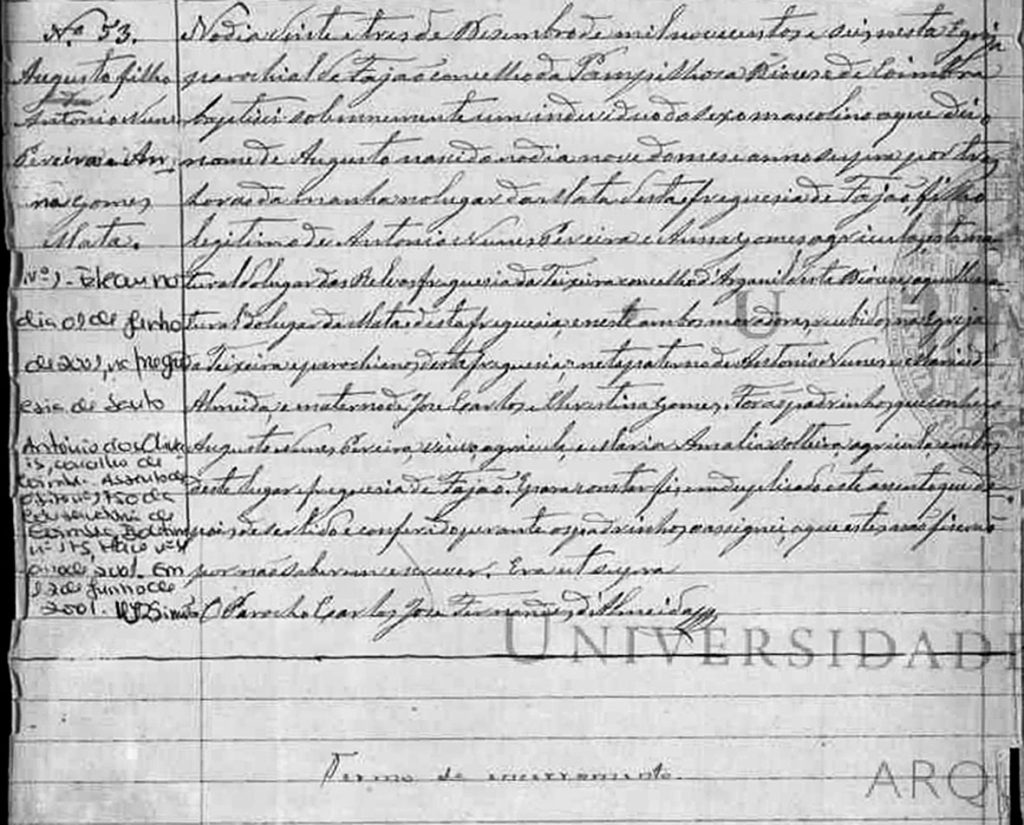 Nº 53.
Augusto filho
de
Antonio Nunes
Pereira e An-
na Gomes
Mata.
Nº 1 - Faleceu no
dia 09 de Junho
de 2001, na fregue
sia de Santo
António dos Olivais
, concelho de
Coimbra. Assento de
óbito nº 750 da
Conservatória de
Coimbra. Boletim
nº 175, Maço nº
de 2001. Em
12 de Junho de
2001.
No dia vinte e tres de Dezembro de mil nove centos e seis, nesta Egreja
parochial de Fajaõ concelho da Pampilhosa Diocese de Coimbra
baptisei solemnemente um individuo do sexo masculino a que dei o
nome de Augusto nascido no dia nove do mes e anno supra por tres
horas da manhã no lugar da Mata desta freguesia de Fajaõ, filho
legitimo de Antonio Nunes Pereira e Anna Gomes, agricultores, esta na-
tural do lugar das Relvas freguesia da Teixeira concelho d'Arganil desta Diocese, aquelle na-
tural do lugar da Mata desta freguesia, e neste ambos moradores, recebidos na Egreja
da Teixeira e parochianos desta freguesia; neto paterno de Antonio Nunes e Maria d'
Almeida e materno de Jose Carlos e Christina Gomes. Foraõ padrinhos, que conheço
Augusto Nunes Pereira, viuvo, agricula, e Maria Amalia, solteira, agricula, ambos
deste lugar e freguesia de Fajaõ. E para constar fiz em duplicado este assento que de-
pois de ser lido e conferido perante os padrinhos, o assignei, a que estes não fizeraõ
por não saberem escrever. Era ut supra
O Parocho Carlos Jose Fernandes d'Almeida
Termo de encerramento.
U
UNIVERSIDADE
ARQU